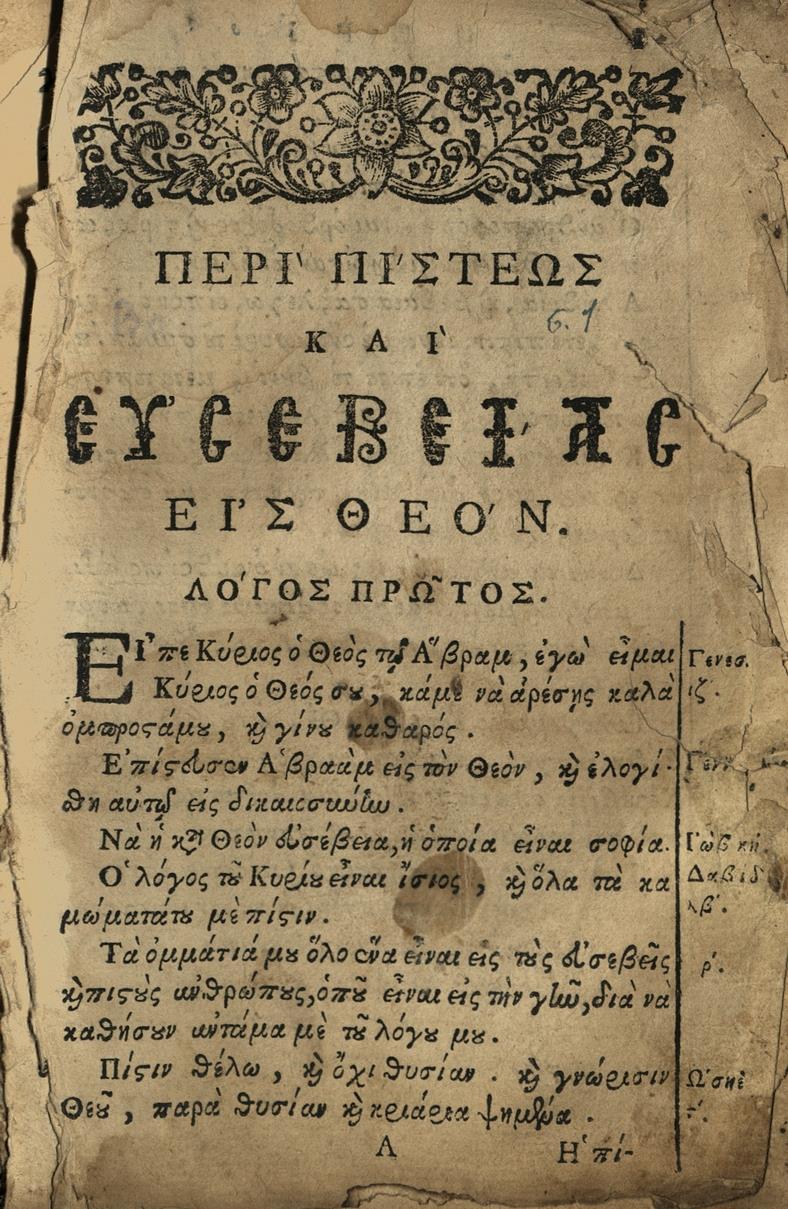 ΠΕΡΙ` ΠΙ'ΣΤΕΩΣ
ΚΑΙ`
ΕΥ'ΣΕΒΕΙ'ΑΣ
ΕΙ'Σ ΘΕΟ'Ν.
ΛΟ'ΓΟΣ ΠΡΩ͂ΤΟΣ.
6.1
ΕΙ῏πε Κύριος ὁ Θεὸς τῷ Ἄβραμ, ἐγὼ εἶμαι
Κύριος ὁ Θεός σου, κάμε νὰ ἀρέσῃς καλὰ
ὀμπροστάμου, καὶ γίνου καθαρός.
Ἐπίστευσεν Ἀβραὰμ εἰς τὸν Θεὸν, καὶ ἐλογί-
θη αὐτῷ εἰς δικαιοσύνην.
Νὰ ἡ κατὰ Θεὸν εὐσέβεια, ἡ ὁποία εἶναι σοφία.
Ὁ λόγος τοῦ Κυρίου εἶναι ἴσιος, καὶ ὅλα τὰ κα
μώματάτου μὲ πίστιν.
Τὰ ὀμμάτιά μου ὅλο ἕνα εἶναι εἰς τοὺς εὐσεβεῖς
καὶ πιστοὺς ἀνθρώπους, ὁποῦ εἶναι εἰς τὴν γῆν, διὰ νὰ
καθήσουν ἀντάμα μὲ τοῦ λόγου μου.
Πίστιν θέλω, καὶ ὄχι θυσίαν. καὶ γνώρισιν
Θεοῦ, παρὰ θυσίαν καὶ κριάρια ψημένα.
Α
Ἡ πί-
Γενεσ.
ιζ'.
Ἰὼβ κή.
Δαβὶδ
λβ'.
ρ'.
Ὠσηὲ